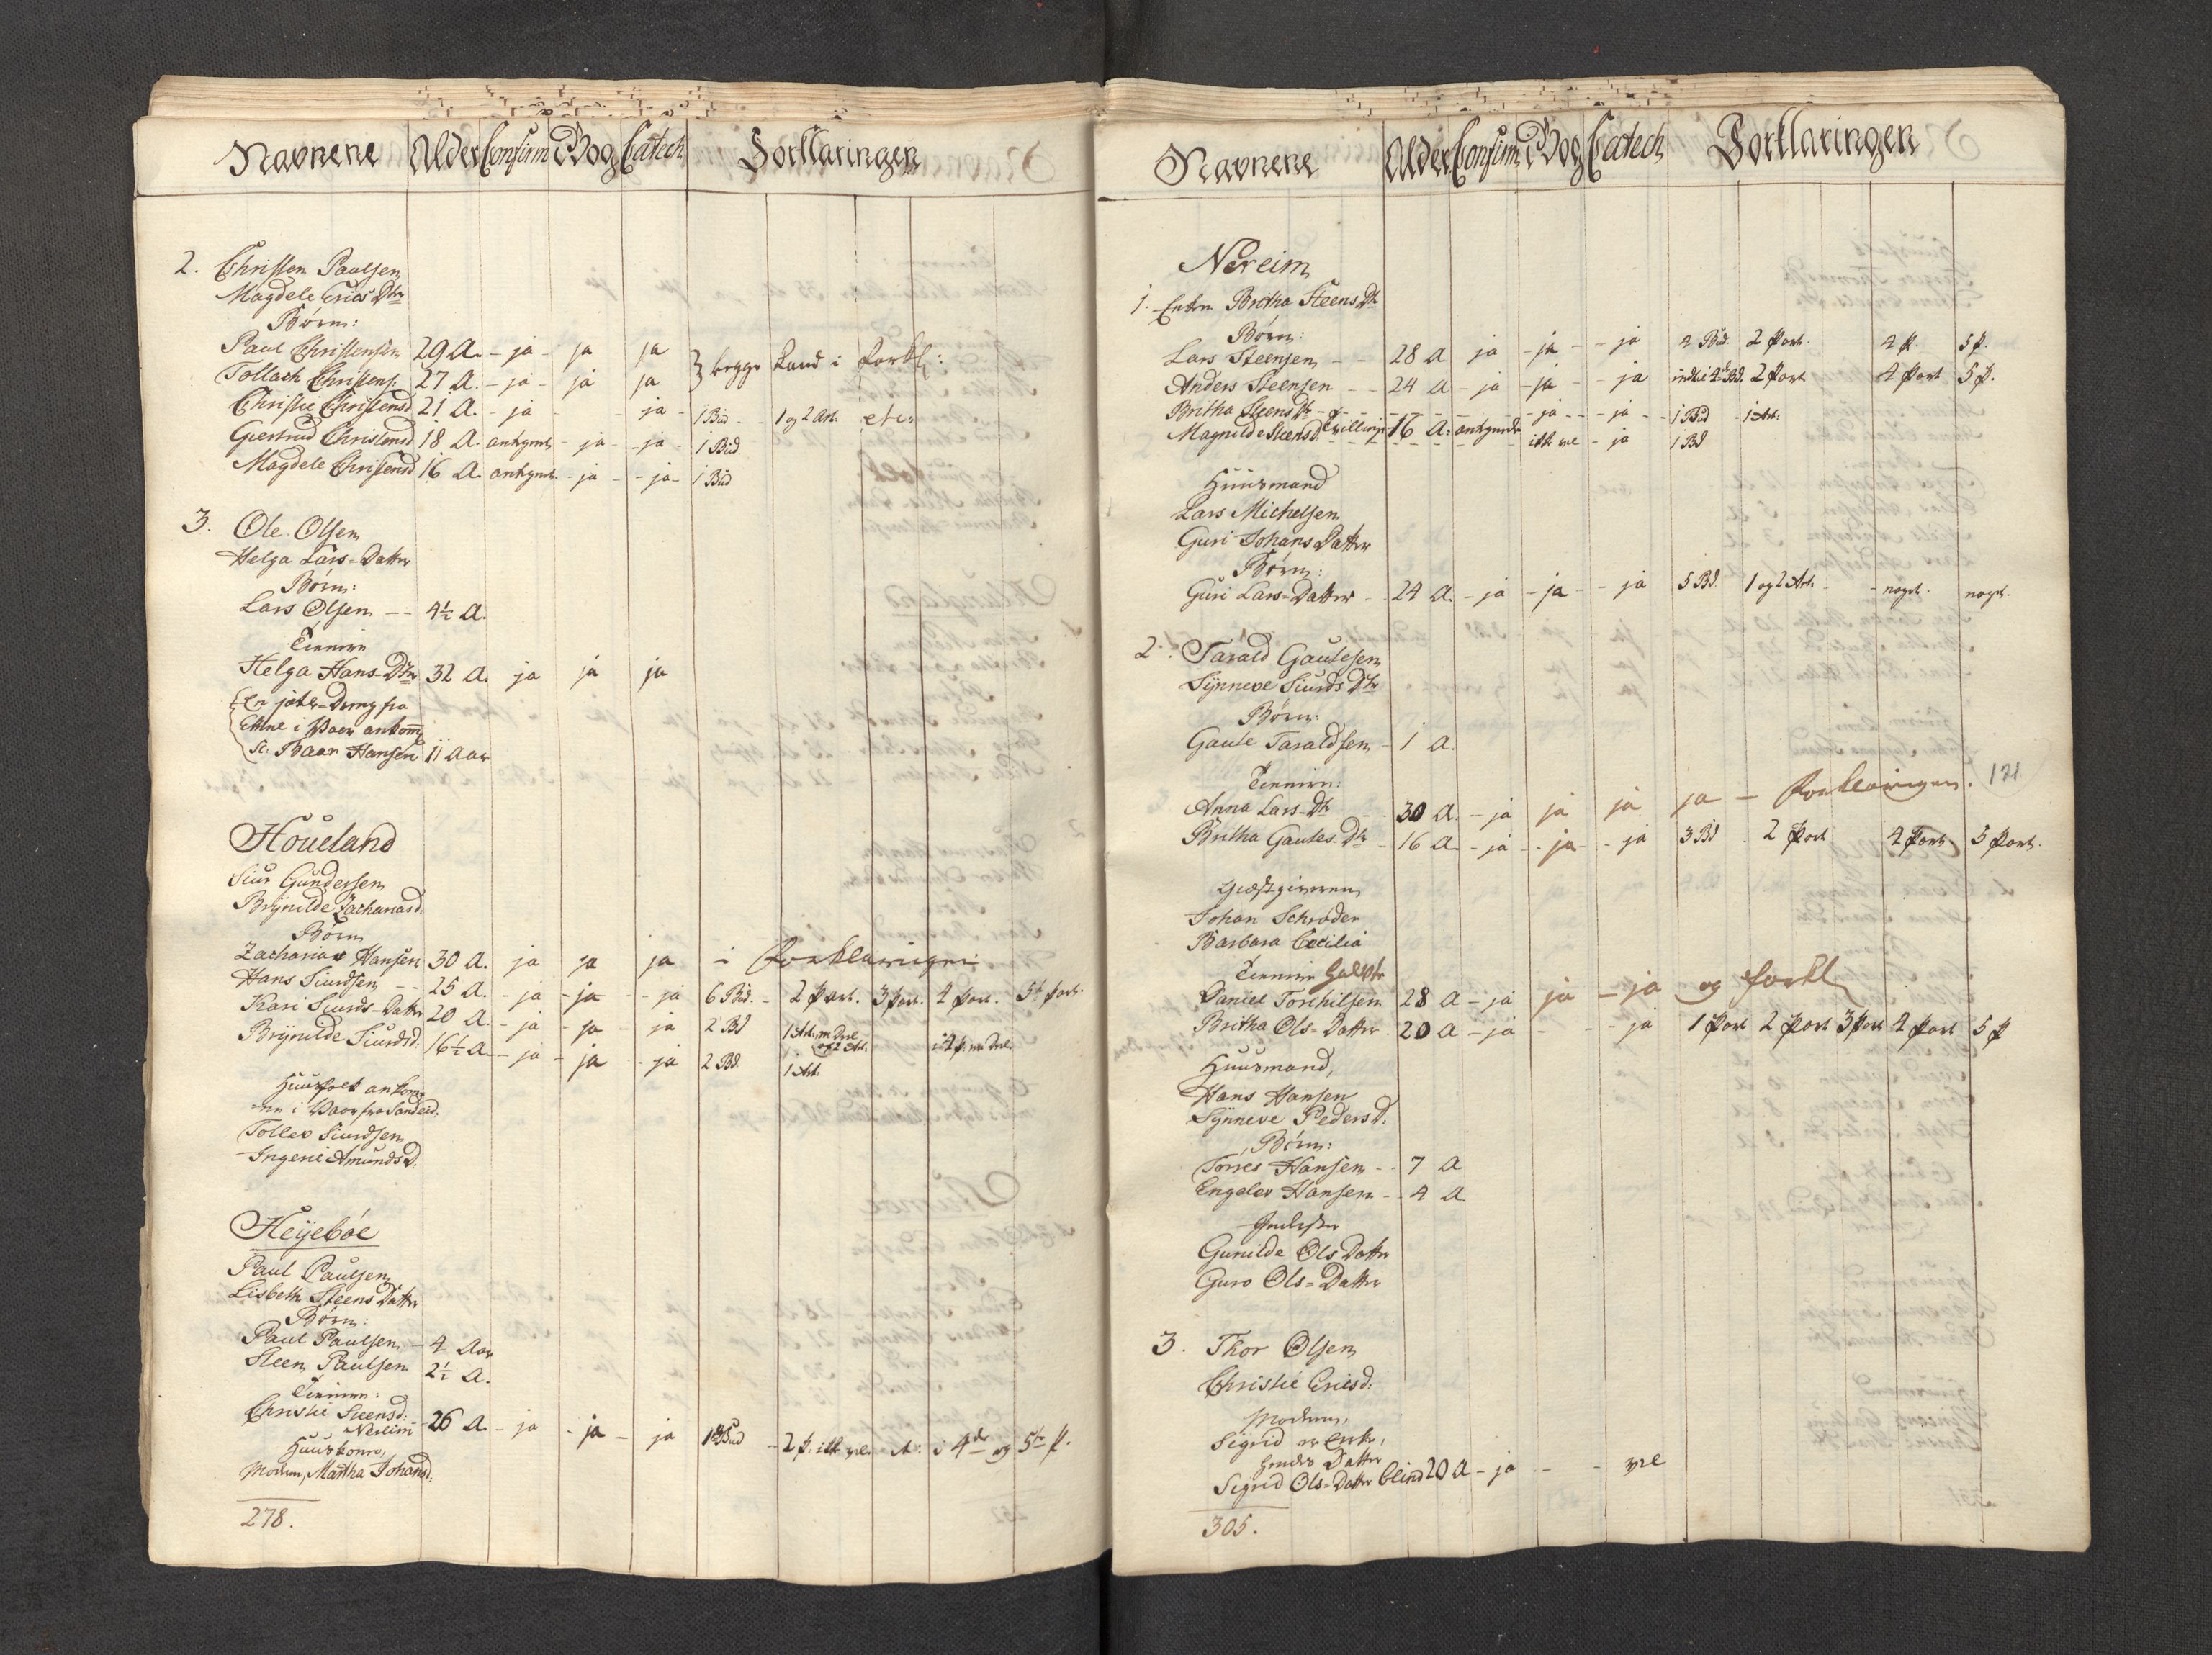 Navnene Alder Confirm i Bog Catech Forklaringen
2. Christen Paulsen
Magdele Erics Dtr
Børn:
Paul Christensen 29 A. - ja - ja ja } begge land i forkl:
Tollach Christens: 27 A. - ja - ja ja
Christie Christensd 21 A. - ja - - ja - 1 Bud - 1 og 2 Art. etc:
Giertrud Christensd 18 A. antegnet - ja - ja - 1 Bud.
Magdele Christensd 16 A. antegnet - ja - ja - 1 Bud
3. Ole Olsen
Helga Lars-Datter
Børn:
Lars Olsen -- 4½ A.
Tienere
Helga Hans-Dtr 32 A. ja ja ja
En jæte-Dreng fra
Ettne i Vaar ankom
sc. Baar Hansen 11 Aar
Houeland
Siur Gundersen
Brynilde Zachariasd.
Børn
Zacharias Hansen 30 A. ja ja ja - i Forklaringen
Hans Siurdsen -- 25 A. - ja - ja - ja 6 Bud. - 2 Part. 3 Part. 4 Part. 5te Part.
Kari Siurds-Datter 20 A. - ja - ja - ja 2 Bd 1 Art. en Deel og 2 Art. i 4 P. en Deel
Brynilde Siurdsd: 16½ A. - ja - ja - ja 2 Bd. 1 Art.
Huusfolk ankom-
ne i Vaar fra Sandeid.
Tollev Siurdsen
Ingeri Amunds D.
Heyebøe
Paul Paulsen
Lisbeth Steens Datter
Børn:
Paul Paulsen - 4 Aar
Steen Paulsen 2½ A.
Tienere:
Christie Steensd: Nereim - 26 A. - ja - ja - ja 1 Bud - 2 P. ikke vel i 4de og 5te P.
Huuskone,
Moderen, Martha Johansd:
278.
Navnene Alder Confirm i Bog Catech Forklaringen
Nereim
1. Enken Britha Steens Dtr
Børn:
Lars Steensen - - 28 A ja - ja - - ja 4 Bud. 2 Part. 4 P. 5 P.
Anders Steensen - - 24 A - ja - ja - - ja indtil 4de Bd. 2 Part 4 Part 5 P.
Britha Steens Dtr - - ja - - ja - - 1 Bud - 1 Art:
Magnilde Steensd. Tvillinger 16 A: antegnede ikke vel - ja 1 Bd
Huusmand
Lars Michelsen
Guri Johans Datter
Børn:
Guri Lars-Datter - - 24 A. - ja - ja - - ja 5 Bd. 1 og 2 Art. - - noget. noget.
2. Tarald Gautesen
Synneve Siurds Dtr
Børn:
Gaute Taraldsen - 1 A.
Tienere:
Anna Lars-Dtr 30 A. - ja ja ja ja - Forklaringen. 121
Britha Gautes-Dtr - 16 A. - ja - ja - - ja 3 Bd. 2 Part 4 Part 5 Part.
Giæstgiveren
Johan Schrøder
Barbara Cecilia
Tienere
Daniel Torchilsen 28 A - ja ja - ja og forkl
Britha Ols-Datter 20 A - ja - - - ja 1 Part 2 Part 3 Part 4 Part 5 P
Huusmand,
Hans Hansen
Synneve Peders D:
Børn:
Torres Hansen - - 7 A
Engelev Hansen - - 4 A
Inderster
Gunilde Ols Datter
Guro Ols-Datter
3. Thor Olsen
Christie Ericsd:
Moderen,
Sigrid er Enke,
hendes Datter
Sigrid Ols-Datter blind 20 A - ja - - vel
305.